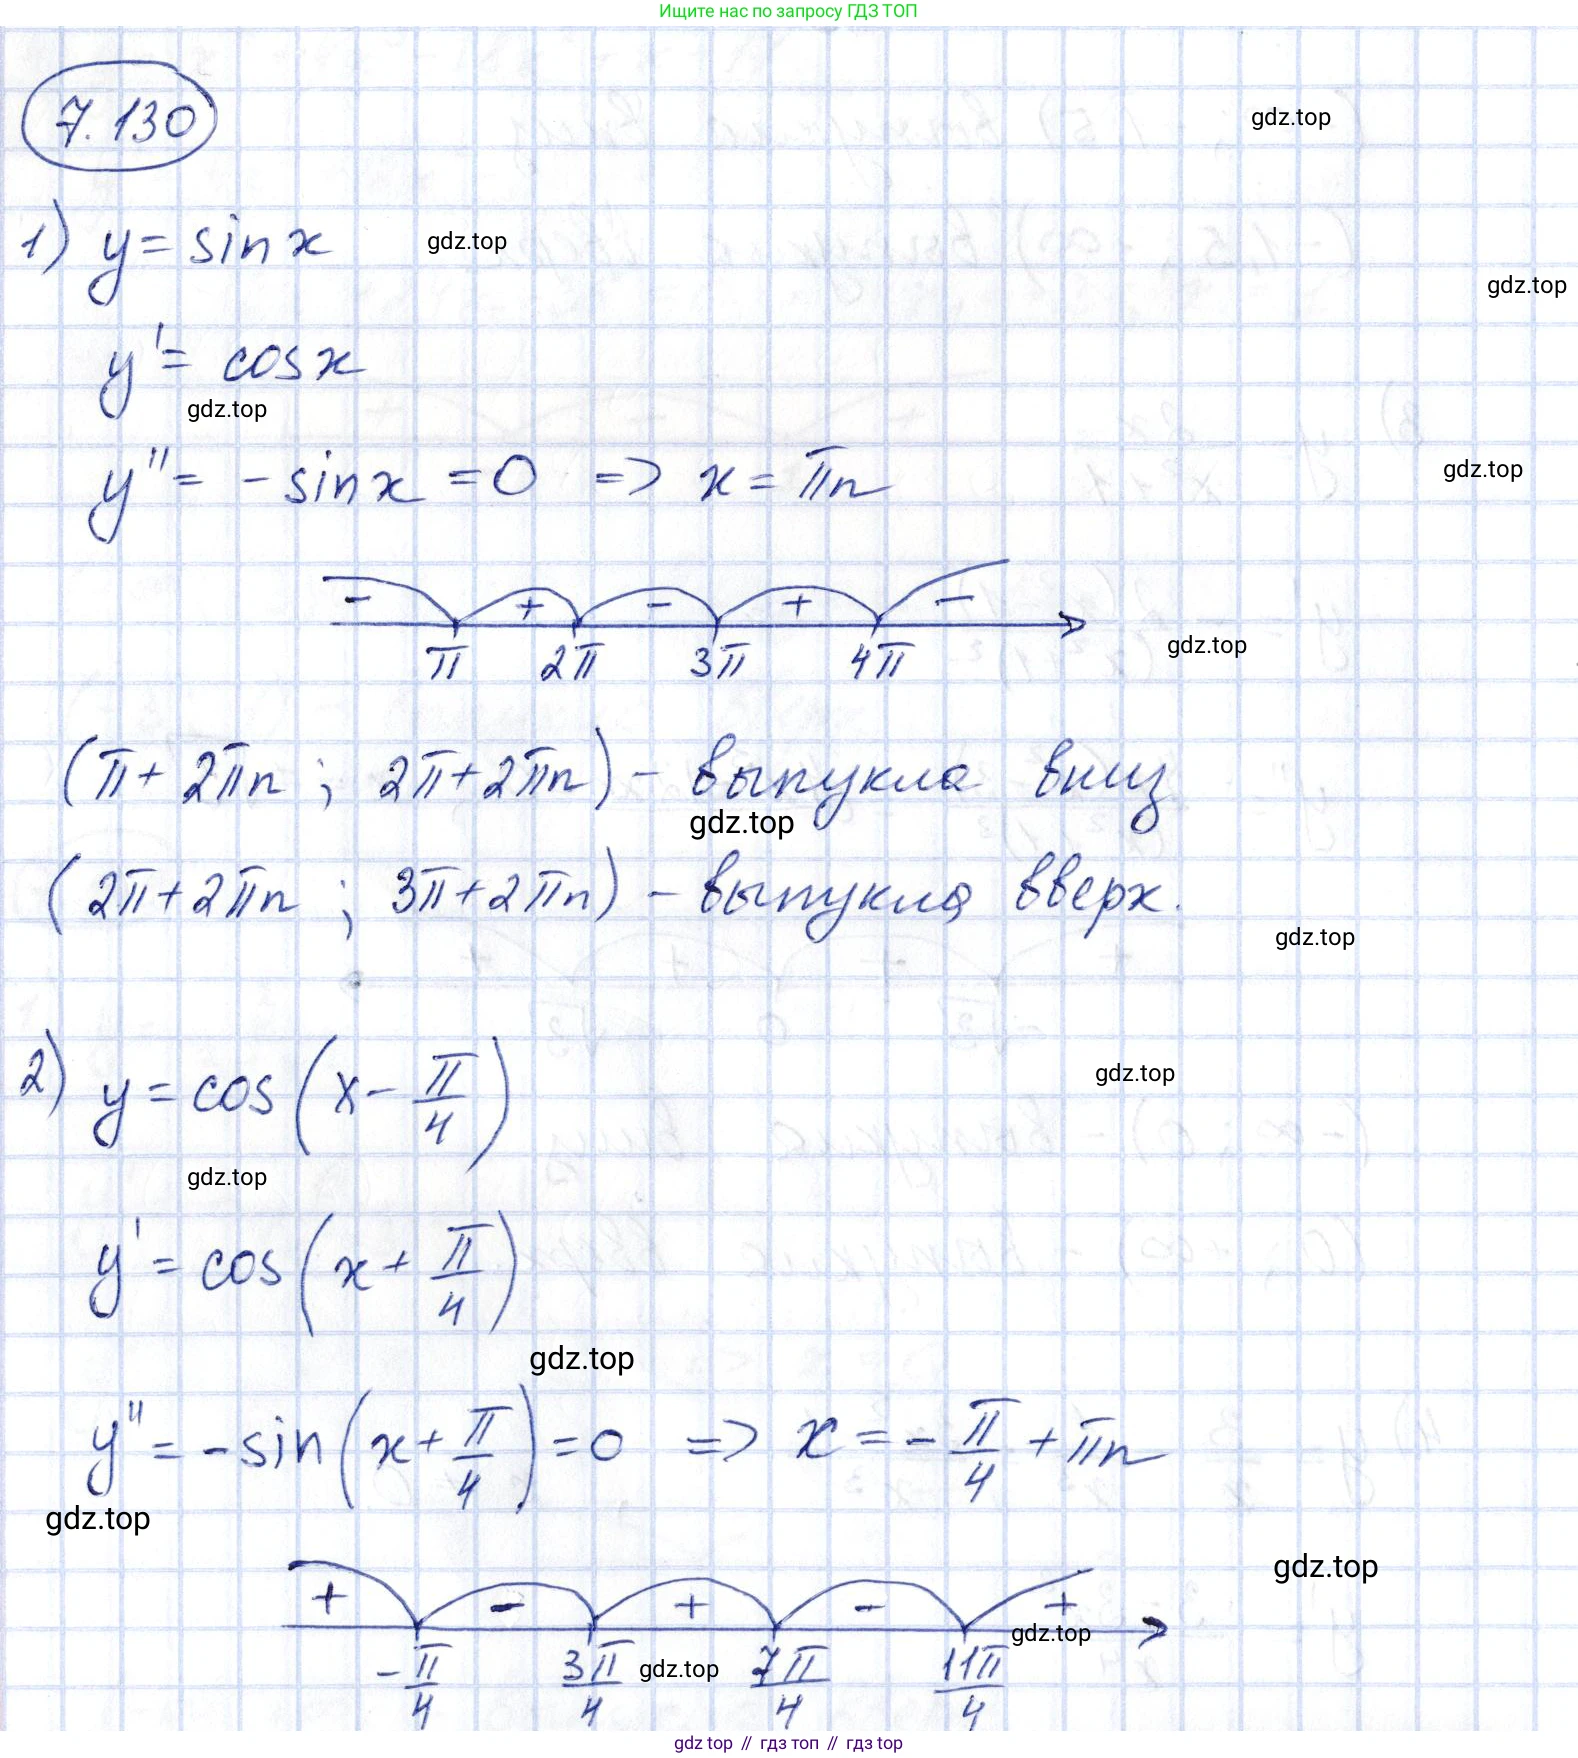 Ищите нас по запросу ГДЗ ТОП
7.130
gdz.top
1) y = sin x
gdz.top
gdz.top
y' = cos x
gdz.top
y'' = - sin x = 0 => x = πn
gdz.top
- + - + -
π 2π 3π 4π
gdz.top
(π + 2πn ; 2π + 2πn) - выпукла вниз
gdz.top
(2π + 2πn ; 3π + 2πn) - выпукла вверх.
gdz.top
2) y = cos(x - π/4)
gdz.top
gdz.top
y' = cos(x + π/4)
gdz.top
y'' = - sin(x + π/4) = 0 => x = - π/4 + πn
gdz.top
gdz.top
+ - + - +
gdz.top
-π/4 3π/4 7π/4 11π/4
gdz.top
gdz top // гдз топ // гдз top